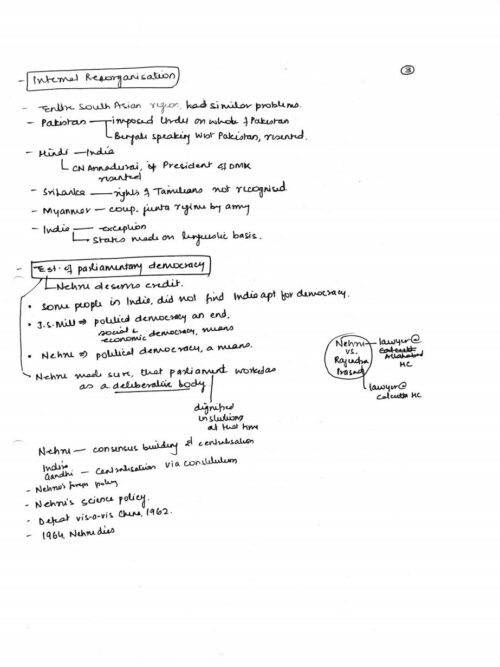 ③
- Internal Reorganisation
- Entire South Asian region had similar problems.
- Pakistan — imposed Urdu on whole of Pakistan
Bengali speaking West Pakistan, resented.
- Hindi — India
CN Annadurai, of President of DMK
resented
- Sri Lanka — rights of Tamilians not recognised
- Myanmar — coup, junta regime by army
- India — exception
States made on linguistic basis.
- Est. of parliamentary democracy
Nehru deserves credit.
• Some people in India, did not find India apt for democracy.
• J.S. Mill ⇒ political democracy an end.
social &
economic democracy, means
• Nehru ⇒ political democracy, a means.
Nehru made sure, that parliament worked as
as a deliberative body
dignified
institutions
at that time
Nehru vs. Rajendra Prasad
lawyer @
Calcutta
Allahabad
HC
lawyer @
Calcutta HC
Nehru — consensus building & centralisation
Indira
Gandhi — centralisation via constitution
- Nehru's foreign policy
- Nehru's science policy.
- Defeat vis-a-vis China, 1962.
- 1964 Nehru dies